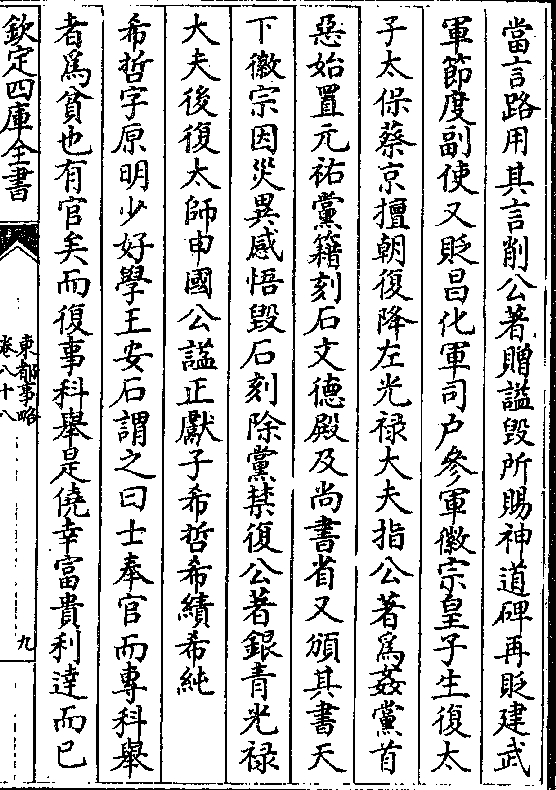 當言路用其言削公著贈謚毀所賜神道碑再貶建武
軍節度副使又貶昌化軍司户參軍徽宗皇子生復太
子太保蔡京擅朝復降左光禄大夫指公著爲姦黨首
惡始置元祐黨籍刻石文德殿及尚書省又頒其書天
下徽宗因災異感悟毀石刻除黨禁復公著銀青光禄
大夫後復太師申國公謚正獻子希哲希績希純
希哲字原明少好學王安石謂之曰士奉官而專科舉
者爲貧也有官矣而復事科舉是僥幸富貴利達而已
欽定四庫全書
東都事略
卷八十八
九